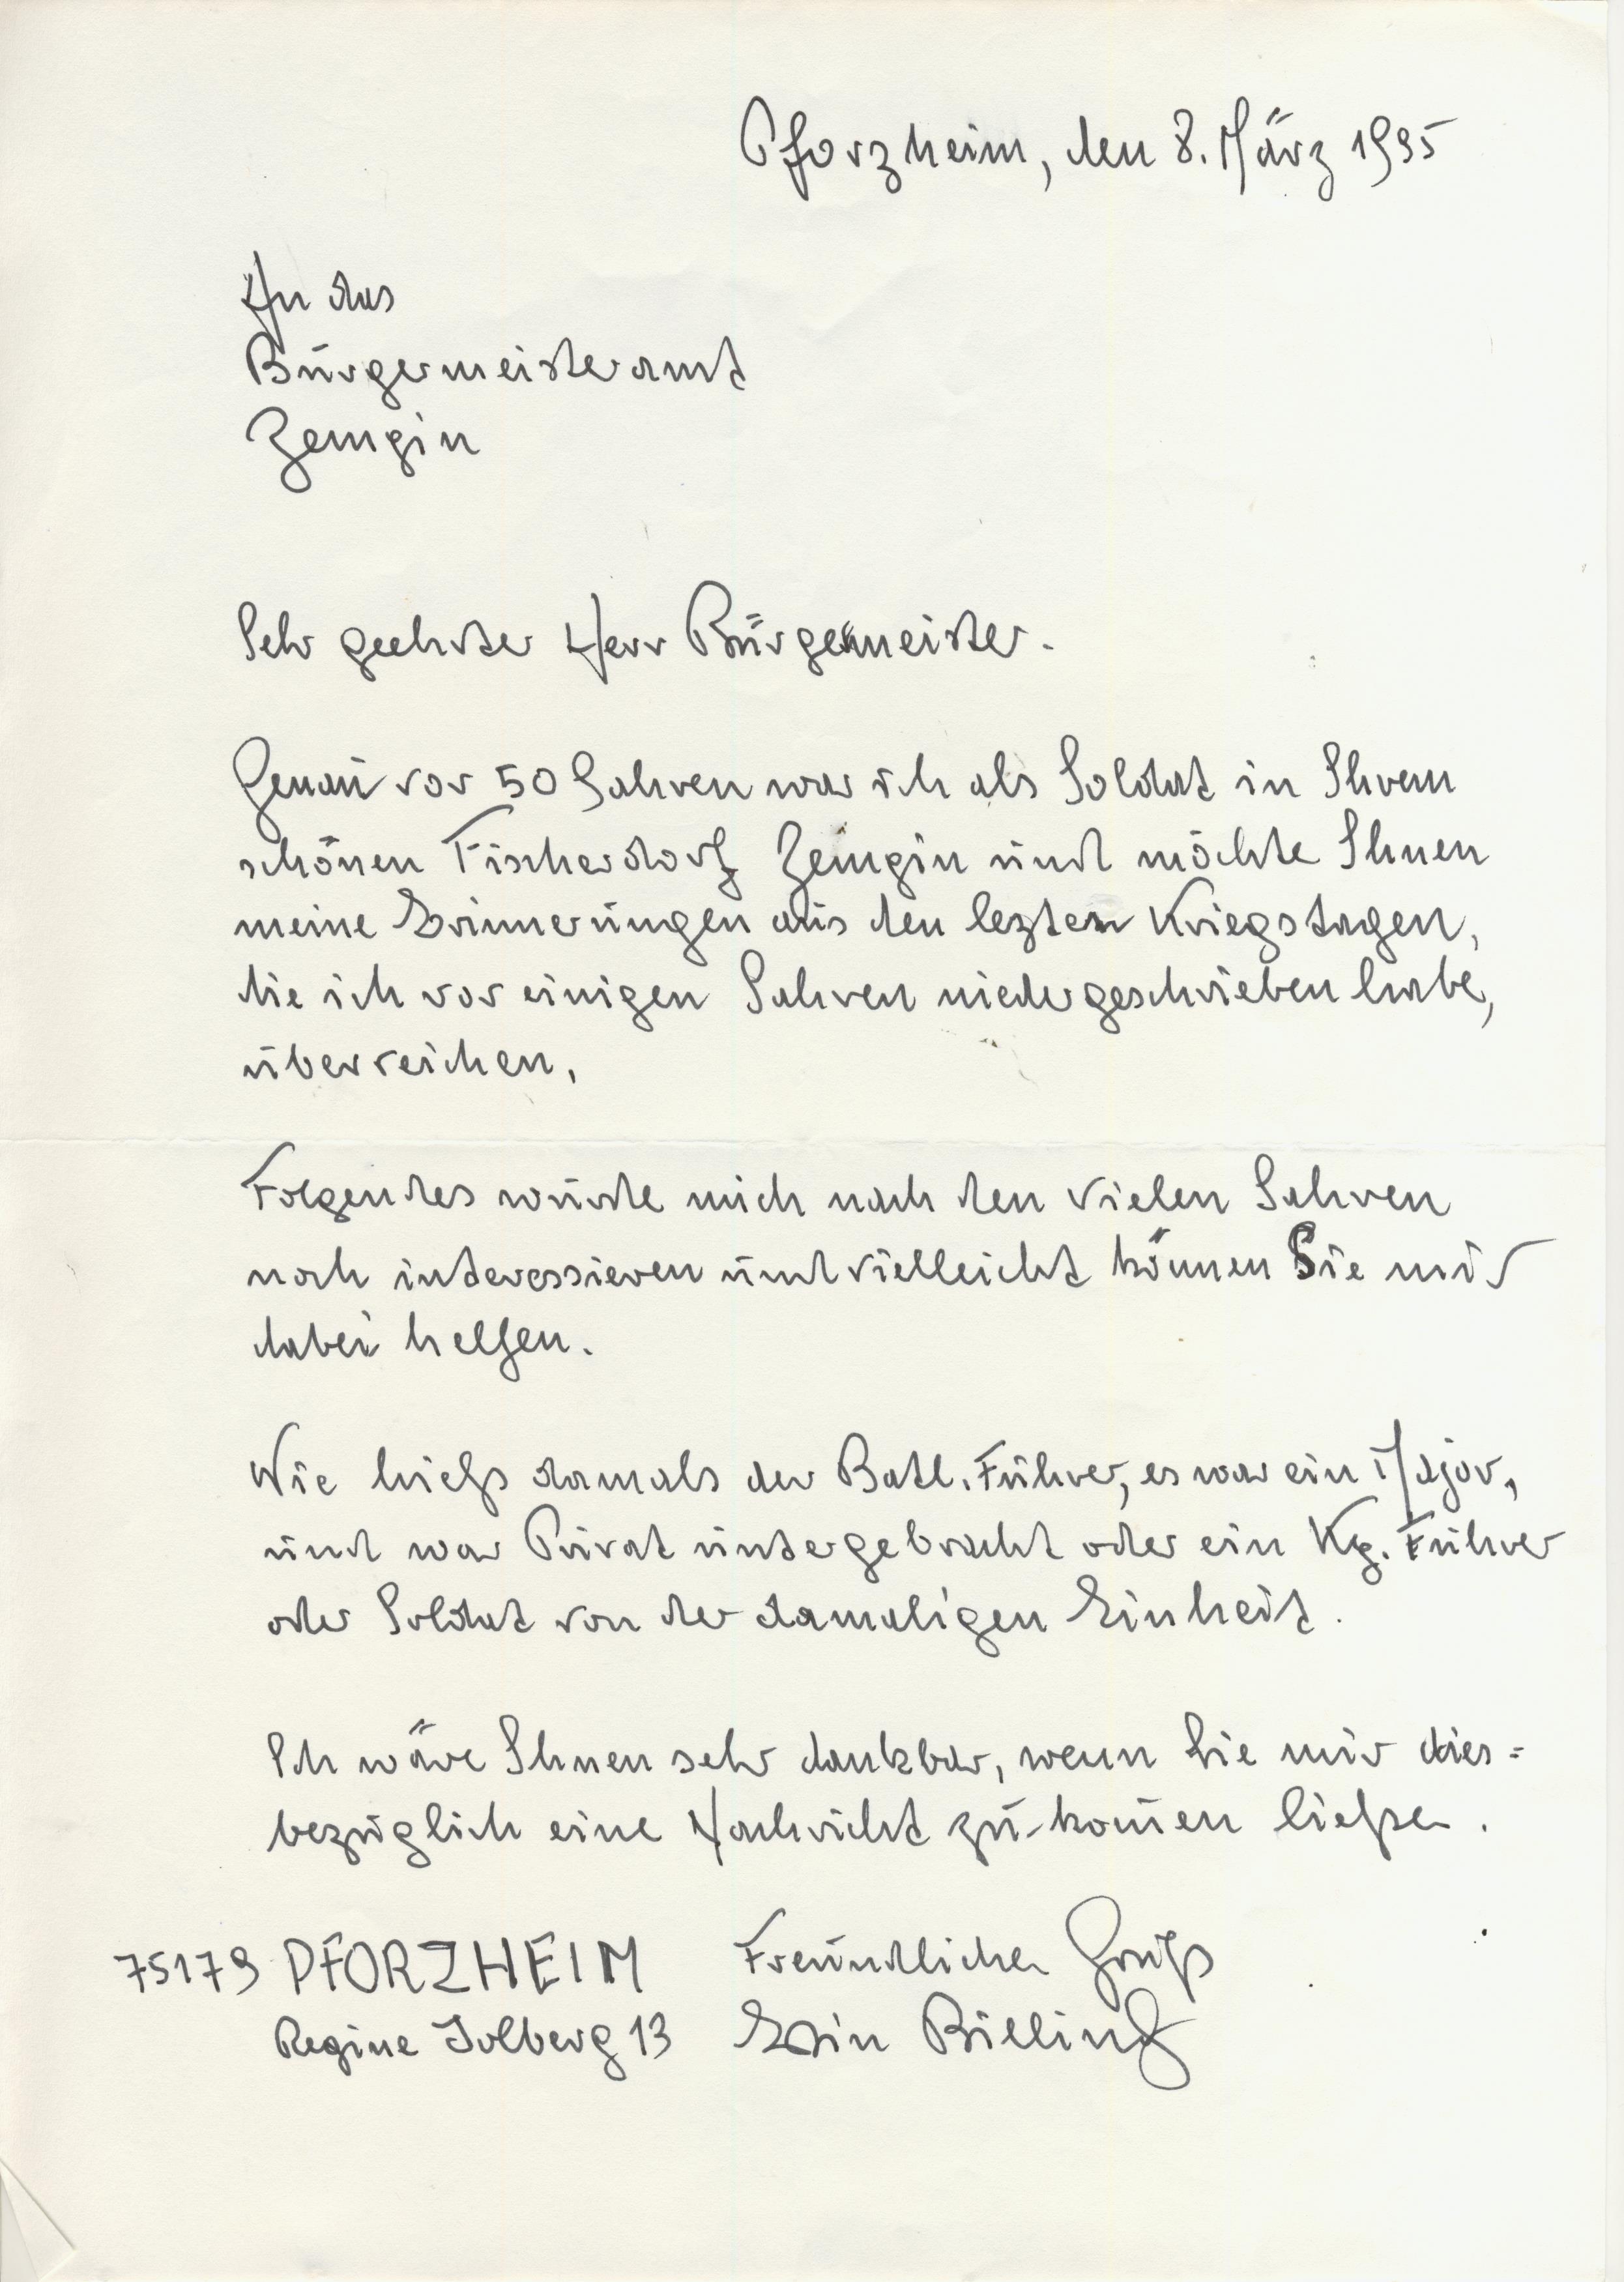 Pforzheim, den 8. März 1995
An das
Bürgermeisteramt
Zempin
Sehr geehrter Herr Bürgermeister.
Genau vor 50 Jahren war ich als Soldat in Ihrem
schönen Fischerdorf Zempin und möchte Ihnen
meine Erinnerungen aus den lezten Kriegstagen,
die ich vor einigen Jahren niedergeschrieben habe,
überreichen.
Folgendes würde mich nach den vielen Jahren
noch interessieren und vielleicht können Sie mir
dabei helfen.
Wie hieß damals der Batl. Führer, es war ein Major,
und war Privat untergebracht oder ein Kp. Führer
oder Soldat von der damaligen Einheit.
Ich wäre Ihnen sehr dankbar, wenn Sie mir dies=
bezüglich eine Nachricht zu-kom̄en ließen.
75179 PFORZHEIM Freundlichen Gruß
Regine Jolberg 13 Billing